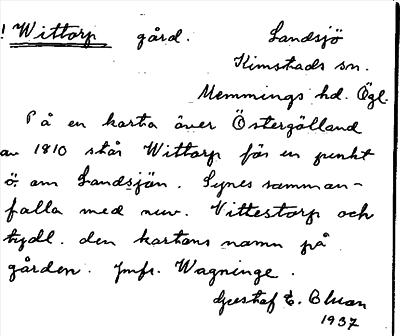 ! Wittorp gård. Landsjö
Kimstads sn.
Memmings hd. Ögl.
På en karta över Östergötland
av 1810 står Wittorp för en punkt
ö. om Landsjön. Synes samman-
falla med nuv. Vittestorp och
tydl. den kartans namn på
gården. Jmfr. Wagninge.
Gustaf E. Bluan
1937